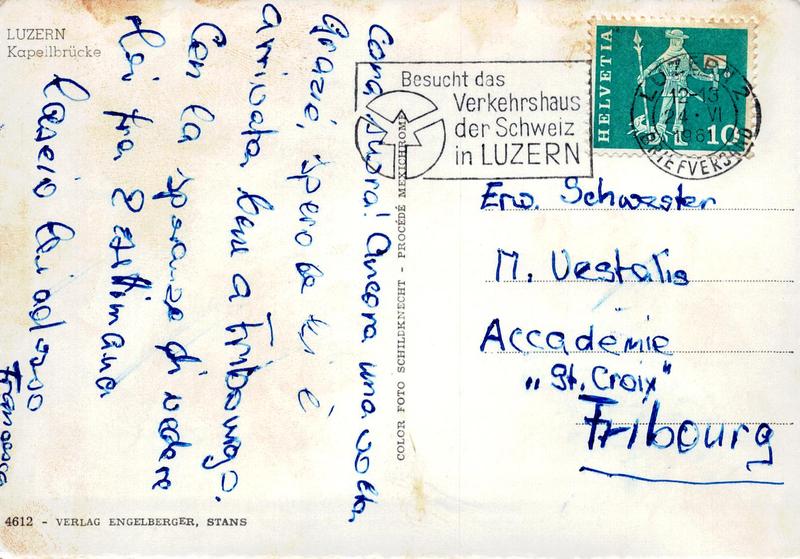 LUZERN
Kapellbrücke
cara suora! Ancora una volta
grazie, spero che Lei è
arrivata bene a Fribourgo.
Con la speranza di vedere
Lei fra 2 settimana
lascio Lei adesso
Francesca
COLOR FOTO SCHILDKNECHT - PROCÉDÉ MEXICHROME
Besucht das
Verkehrshaus
der Schweiz
in LUZERN
HELVETIA
10
LUZERN 2
12-13
24. VI
196
BRIEFVERSAND
Erw. Schwester
M. Vestalis
Accademie
„St. Croix"
Fribourg
4612 - VERLAG ENGELBERGER, STANS